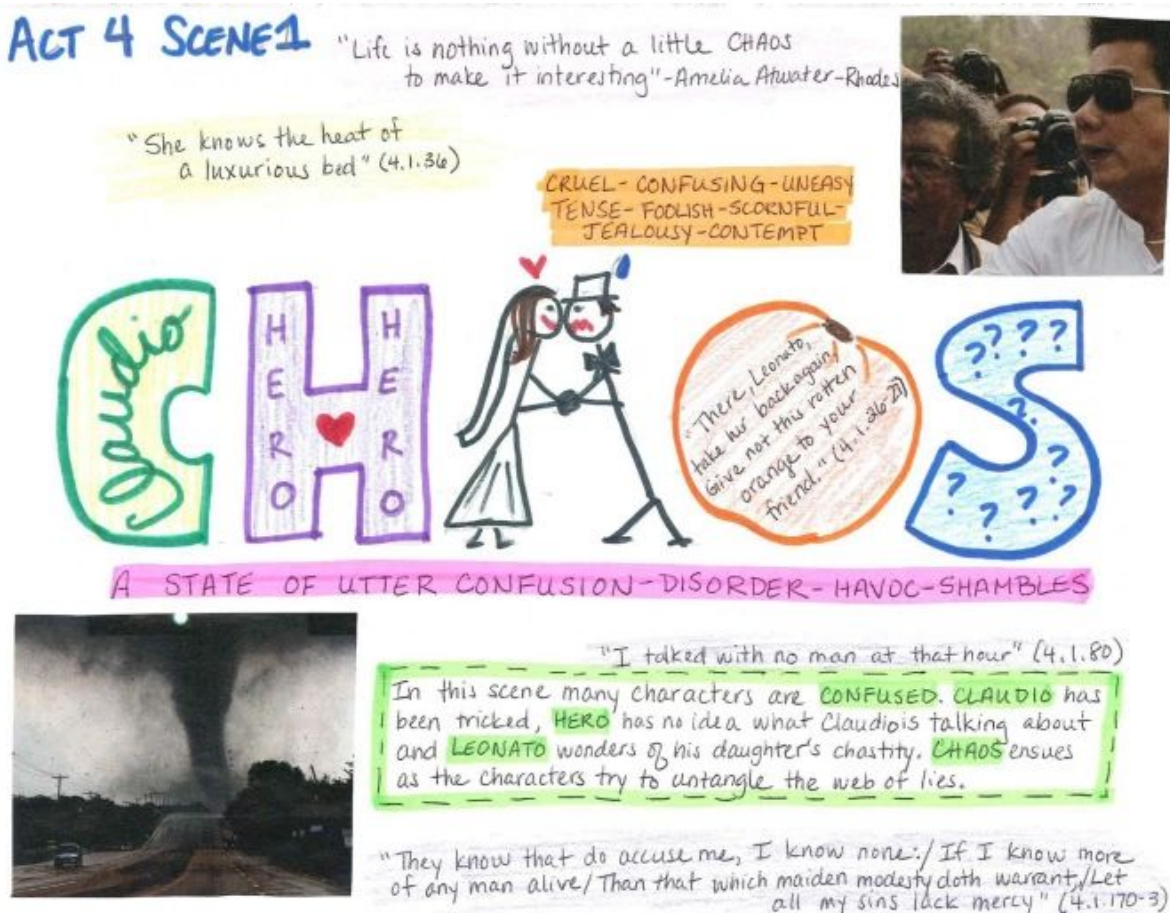 ACT 4 SCENE 1
"Life is nothing without a little CHAOS
to make it interesting"-Amelia Atwater-Rhodes
"She knows the heat of
a luxurious bed" (4.1.36)
CRUEL-CONFUSING-UNEASY
TENSE-FOOLISH-SCORNFUL-
JEALOUSY-CONTEMPT
CHAOS
Claudio
HERO
HERO
"There, Leonato,
take her back again,
Give not this rotten
orange to your
friend." (4.1.26-27)
? ? ? ?
?
?
? ? ?
? ?
A STATE OF UTTER CONFUSION-DISORDER-HAVOC-SHAMBLES
"I talked with no man at that hour" (4.1.80)
In this scene many characters are CONFUSED. CLAUDIO has
been tricked, HERO has no idea what Claudio is talking about
and LEONATO wonders of his daughter's chastity. CHAOS ensues
as the characters try to untangle the web of lies.
"They know that do accuse me, I know none:/ If I know more
of any man alive/ Than that which maiden modesty doth warrant,/Let
all my sins lack mercy" (4.1.170-3)